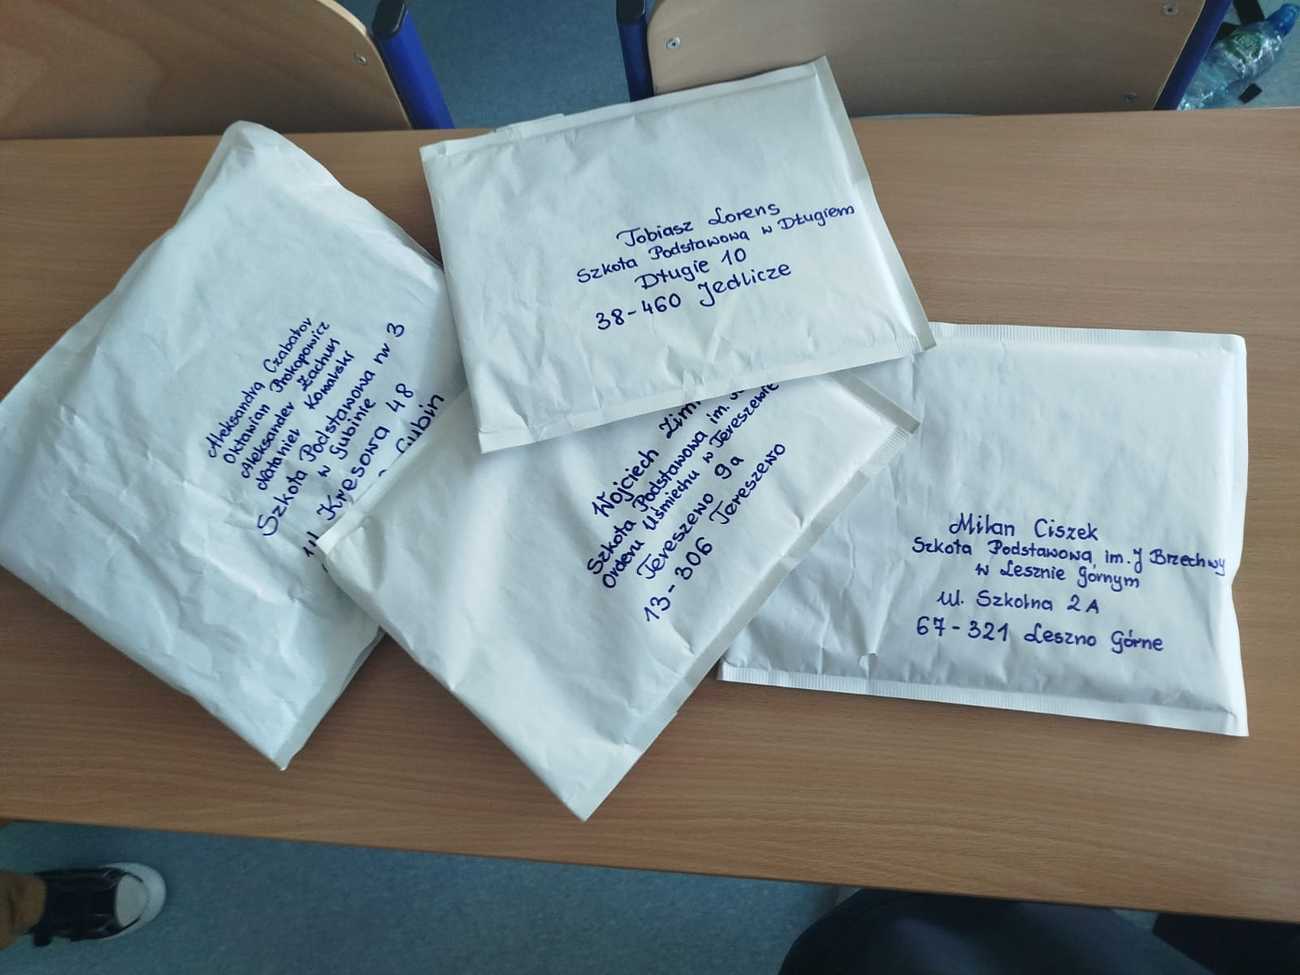 Aleksandra Czabator
Oktawian Prokopowicz
Aleksander Zachuń
Nataniel Kowalski
Szkoła Podstawowa nr 3
w Gubinie
ul Kresowa 48
Gubin
Tobiasz Lorens
Szkoła Podstawowa w Długiem
Długie 10
38-460 Jedlicze
Wojciech
Szkoła Podstawowa im.
Orderu Uśmiechu w Tereszewie
Tereszewo 9a
13-306 Tereszewo
Milan Ciszek
Szkoła Podstawowa im. J Brzechwy
w Lesznie Górnym
ul. Szkolna 2A
67-321 Leszno Górne